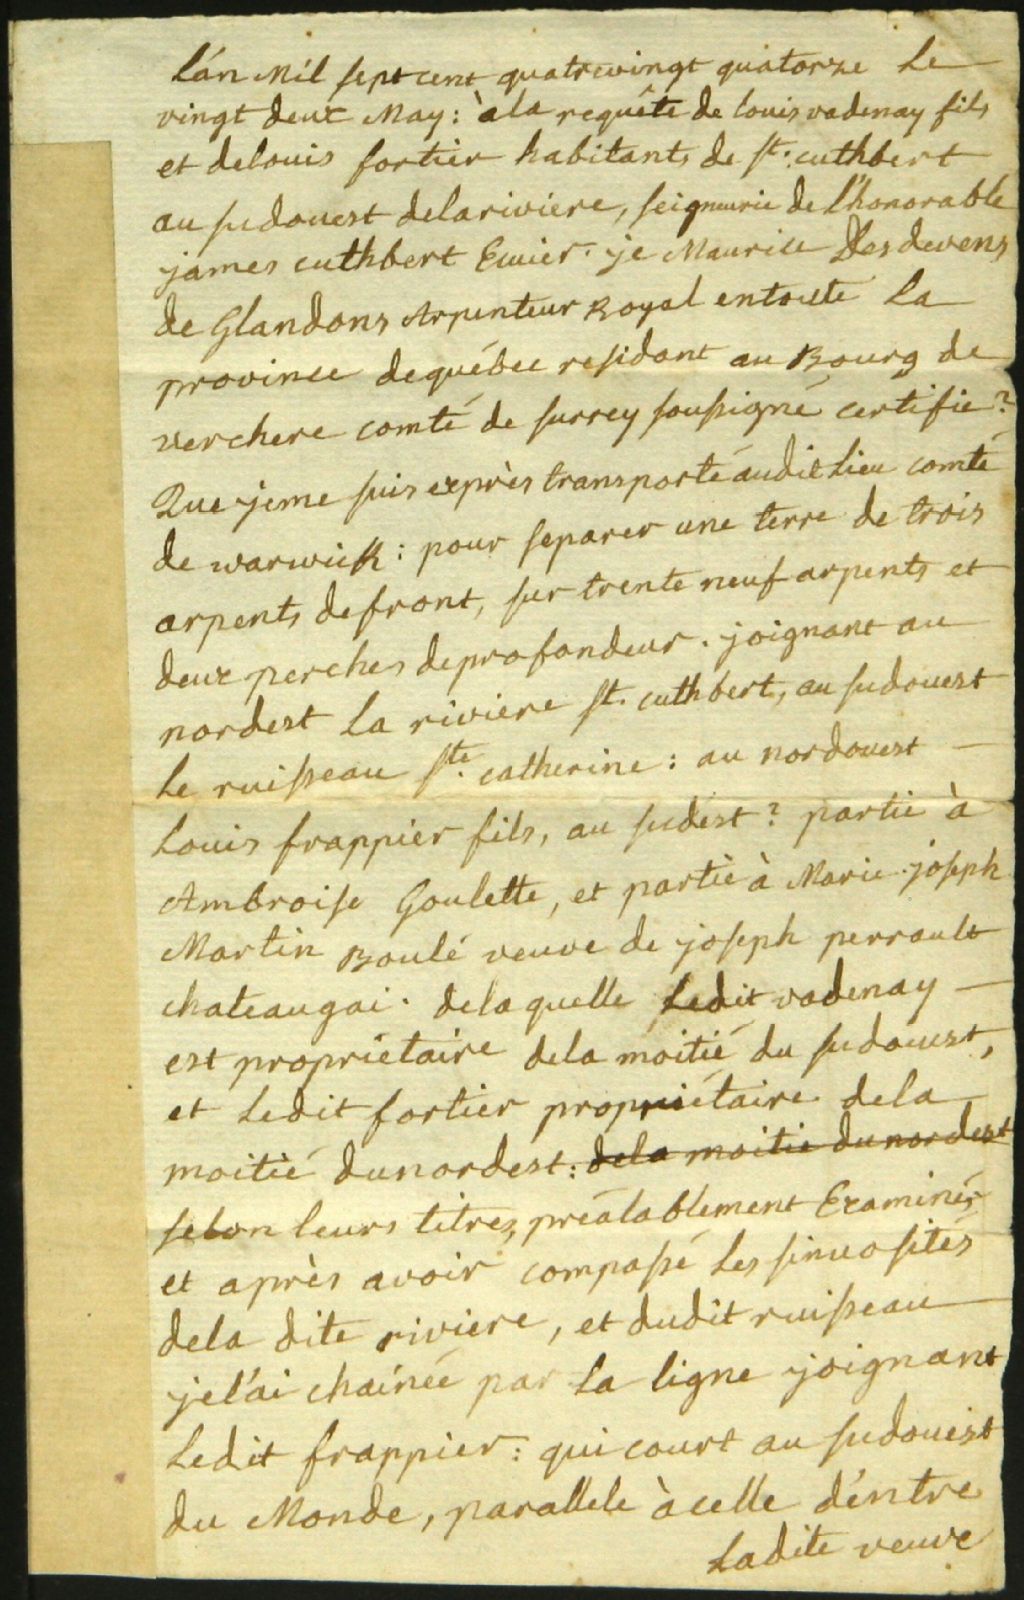 L'an Mil sept cent quatrevingt quatorze Le
vingt deux May: à la requête de louis vadenay fils
et delouis fortier habitants de st. cuthbert
au sudouest delariviere, seigneurie de l'honorable
james cuthbert Ecuier. je Maurice Desdevens
de Glandons Arpenteur Royal entoute La
province dequébec residant au Bourg de
verchere comté de surrey soussigné certifie?
Que jeme suis exprès transporté audit Lieu comté
de warwick: pour separer une terre de trois
arpents defront, sur trente neuf arpents et
deux perches deprofondeur. joignant au
nordest La riviere st. cuthbert, au sudouest
Le ruisseau ste. catherine: au nordouest —
Louis frappier fils, au sudest? partie à
Ambroise Goulette, et partie à Marie joseph
Martin Boulé veuve de joseph perrault
chateaugai. delaquelle Ledit vadenay —
est propriétaire dela moitié du sudouest,
et Ledit fortier propriétaire dela
moitié dunordest: dela moitie dunordest
selon leurs titres, préalablement Examinés
et après avoir compassé Les sinuosités
dela dite riviere, et dudit ruisseau
jel'ai chainée par La ligne joignant
Ledit frappier: qui court au sudouest
du Monde, parallele àcelle d'entre
Ladite veuve